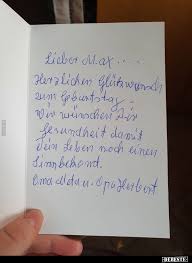 Lieber Max...
Herzlichen Glückwunsch
zum Geburtstag.
Wir wünschen Dir
Gesundheit damit
Dein Leben noch einen
Sinn bekommt.
Oma u. Opa Herbert.
DEBESTE